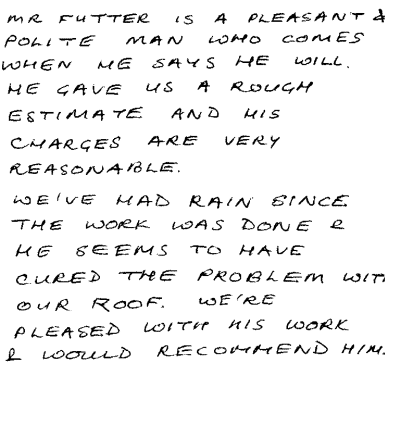 MR FUTTER IS A PLEASANT &
POLITE MAN WHO COMES
WHEN HE SAYS HE WILL.
HE GAVE US A ROUGH
ESTIMATE AND HIS
CHARGES ARE VERY
REASONABLE.
WE'VE HAD RAIN SINCE
THE WORK WAS DONE &
HE SEEMS TO HAVE
CURED THE PROBLEM WITH
OUR ROOF. WE'RE
PLEASED WITH HIS WORK
& WOULD RECOMMEND HIM.